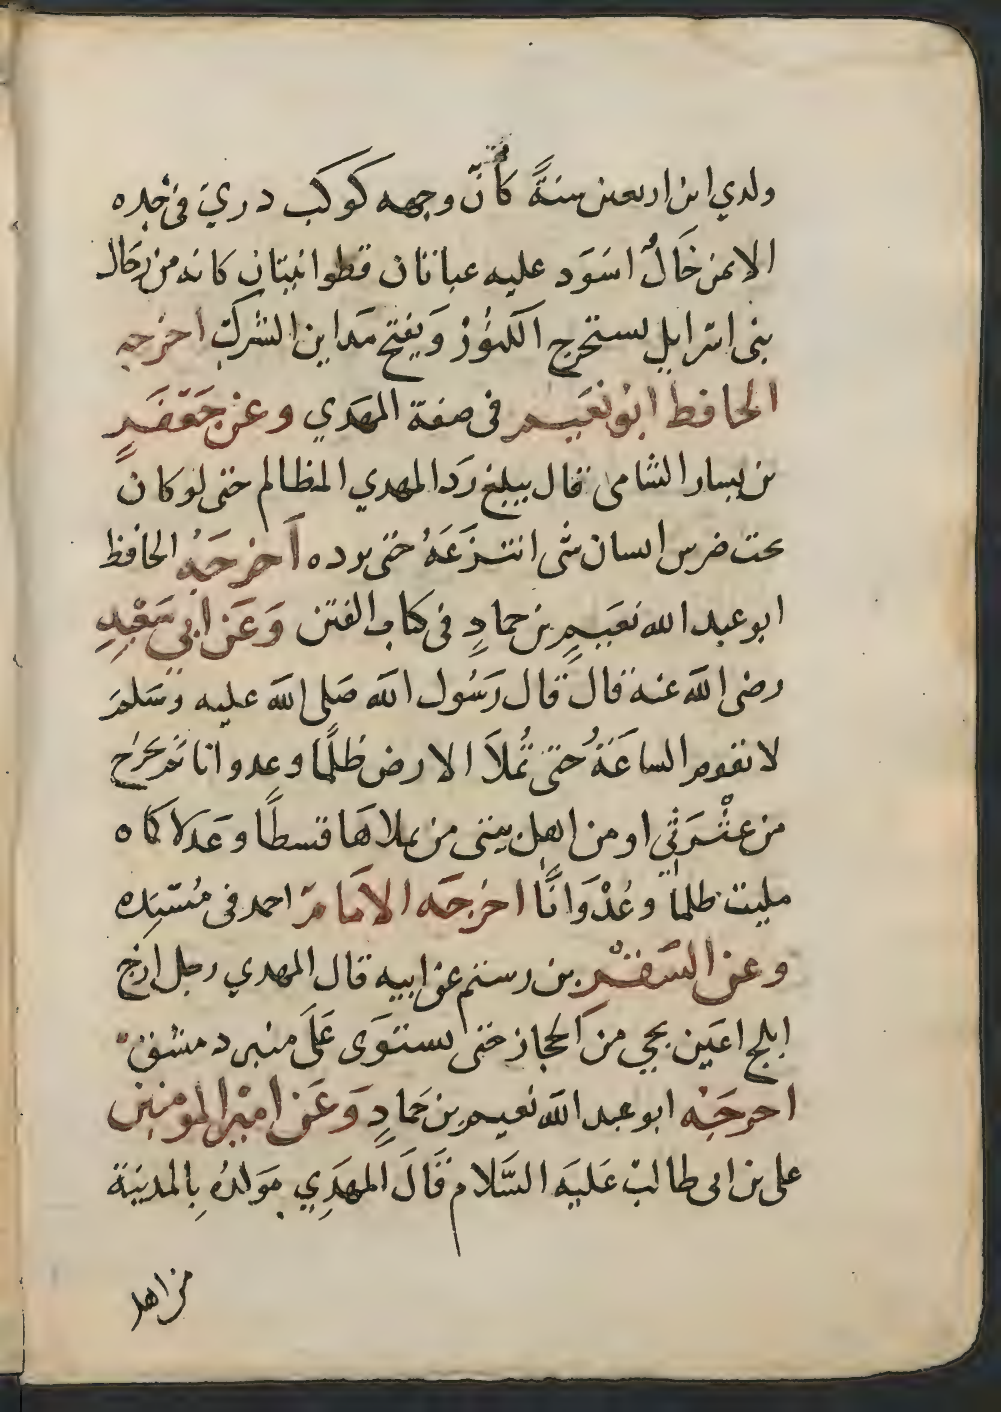 ولدي ابن اربعين سنةً كأنّ وجهه كوكب دري في خده
الايمن خَالٌ اسوَد عليه عباتان قطوانيتان كانه من رجال
بني اسرايل يستخرج الكنُوز وَيفتح مَداين الشرك اخرجه
الحافظ ابُو نعَيم في صفة المهَدي وعن جَعفَرٍ
بن يسار الشامي قال يبلغ رَد المهدي المظالم حتى لو كان
تحت ضرس انسان شي انتزَعَهُ حتى يرده اَخرجَهُ الحافظ
ابو عبد الله نعَيم بن حمادٍ في كتاب الفتن وَعَن ابي سَعْيدٍ
رضي الله عنه قال قال رَسُول الله صَلى الله عليه وسَلم
لا تقوم الساعَةُ حتى تُملاَ الارض ظلمًا وعدوانا ثم يخرج
من عتْرَتي او من اهل بيتي من يملاهَا قسطًا وعَدلا كما
مليت ظلمًا وعُدْوَانًا اخرجَه الامَام احمد في مُسنَده
وعن السَفْر بن رستم عن ابيه قال المهدي رجل ازج
ابلج اعَين يجي من الحجاز حتى يستوَى عَلَى منبر دمشق
اخرجَه ابو عبد الله نعيم بن حَمادٍ وَعَن امير المومنين
علي بن ابي طالب عَليَه السَّلام قَالَ المهَدِي مَولدُه بِالمدينة
من اهل